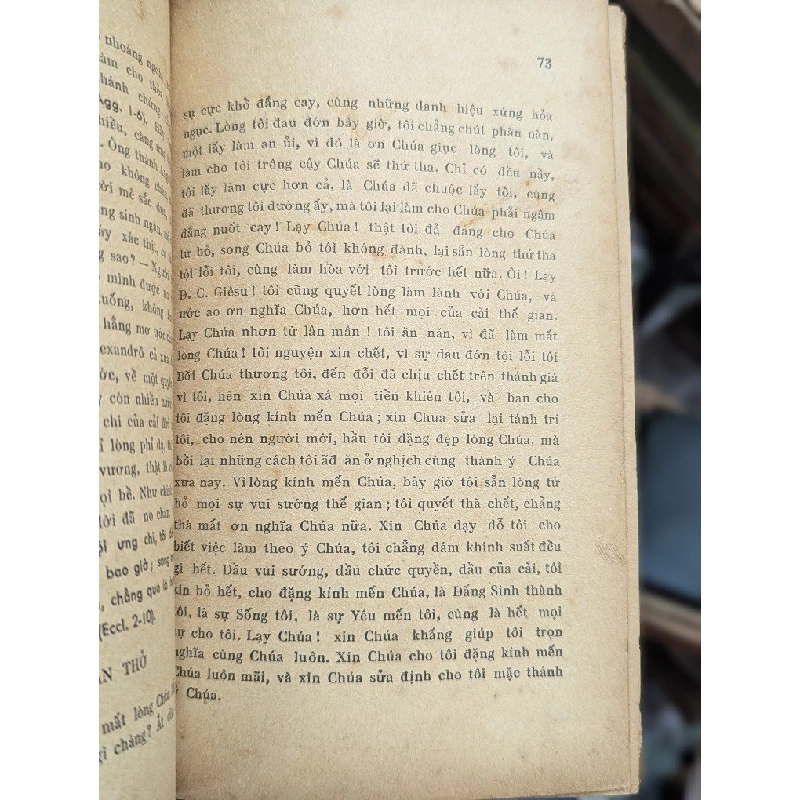 nhoàng
làm cho
thành chứng
Agg. 1-6).
hiều, càng
. Ông thánh
ho không
ười mê sắc
ng sinh ngan,
ày xác thịt,
g sao? — Người
mình được
xuống, không
hằng mơ
exandrô cả
ớc, về một
y còn nhiều
chi của cải
ĩ lòng phỉ dạ,
vương, thật là
ọi bề. Như
lời đã no
ỏi ưng chi, tôi
bao giờ; song
, chẳng qua là
(Eccl. 2-10).
AN THỞ
mất lòng Chúa
gì chăng? Ắt
73
sự cực khổ đắng cay, cùng những danh hiệu xứng hỏa
ngục. Lòng tôi đau đớn bây giờ, tôi chẳng chút phân nàn,
một lấy làm an ủi, vì đó là ơn Chúa giục lòng tôi, và
làm cho tôi trông cậy Chúa sẽ thứ tha. Chỉ có đều này,
tôi lấy làm cực hơn cả, là Chúa đã chuộc lấy tôi, cũng
đã thương tôi dường ấy, mà tôi lại làm cho Chúa phải ngậm
đắng nuốt cay! Lạy Chúa! thật tôi đã đáng cho Chúa
từ bỏ, song Chúa bỏ tôi không đành, lại sẵn lòng thứ tha
tội lỗi tôi, cùng làm hòa với tôi trước hết nữa. Ôi! Lạy
Đ. C. Giêsu! tôi cũng quyết lòng làm lành với Chúa, và
ước ao ơn nghĩa Chúa, hơn hết mọi của cải thế gian.
Lạy Chúa nhơn từ lân mẫn! tôi ăn năn, vì đã làm mất
lòng Chúa! tôi nguyện xin chết, vì sự đau đớn tội lỗi tôi
Bởi Chúa thương tôi, đến đỗi đã chịu chết trên thánh giá
vì tôi, nên xin Chúa xá mọi tiền khiên tôi, và ban cho
tôi đặng lòng kính mến Chúa; xin Chúa sửa lại tánh trí
tôi, cho nên người mới, hầu tôi đặng đẹp lòng Chúa, mà
bồi lại những cách tôi ăđ ăn ở nghịch cùng thành ý Chúa
xưa nay. Vì lòng kính mến Chúa, bây giờ tôi sẵn lòng từ
bỏ mọi sự vui sướng thế gian; tôi quyết thà chết, chẳng
thà mất ơn nghĩa Chúa nữa. Xin Chúa dạy dỗ tôi cho
biết việc làm theo ý Chúa, tôi chẳng dám khinh suất đều
gì hết. Dầu vui sướng, dầu chức quyền, dầu của cải, tôi
xin bỏ hết, cho đặng kính mến Chúa, là Đấng Sinh thành
tôi, là sự Sống tôi, là sự Yêu mến tôi, cùng là hết mọi
sự cho tôi. Lạy Chúa! xin Chúa khấng giúp tôi trọn
nghĩa cùng Chúa luôn. Xin Chúa cho tôi đặng kính mến
Chúa luôn mãi, và xin Chúa sửa định cho tôi mặc thánh
ý Chúa.